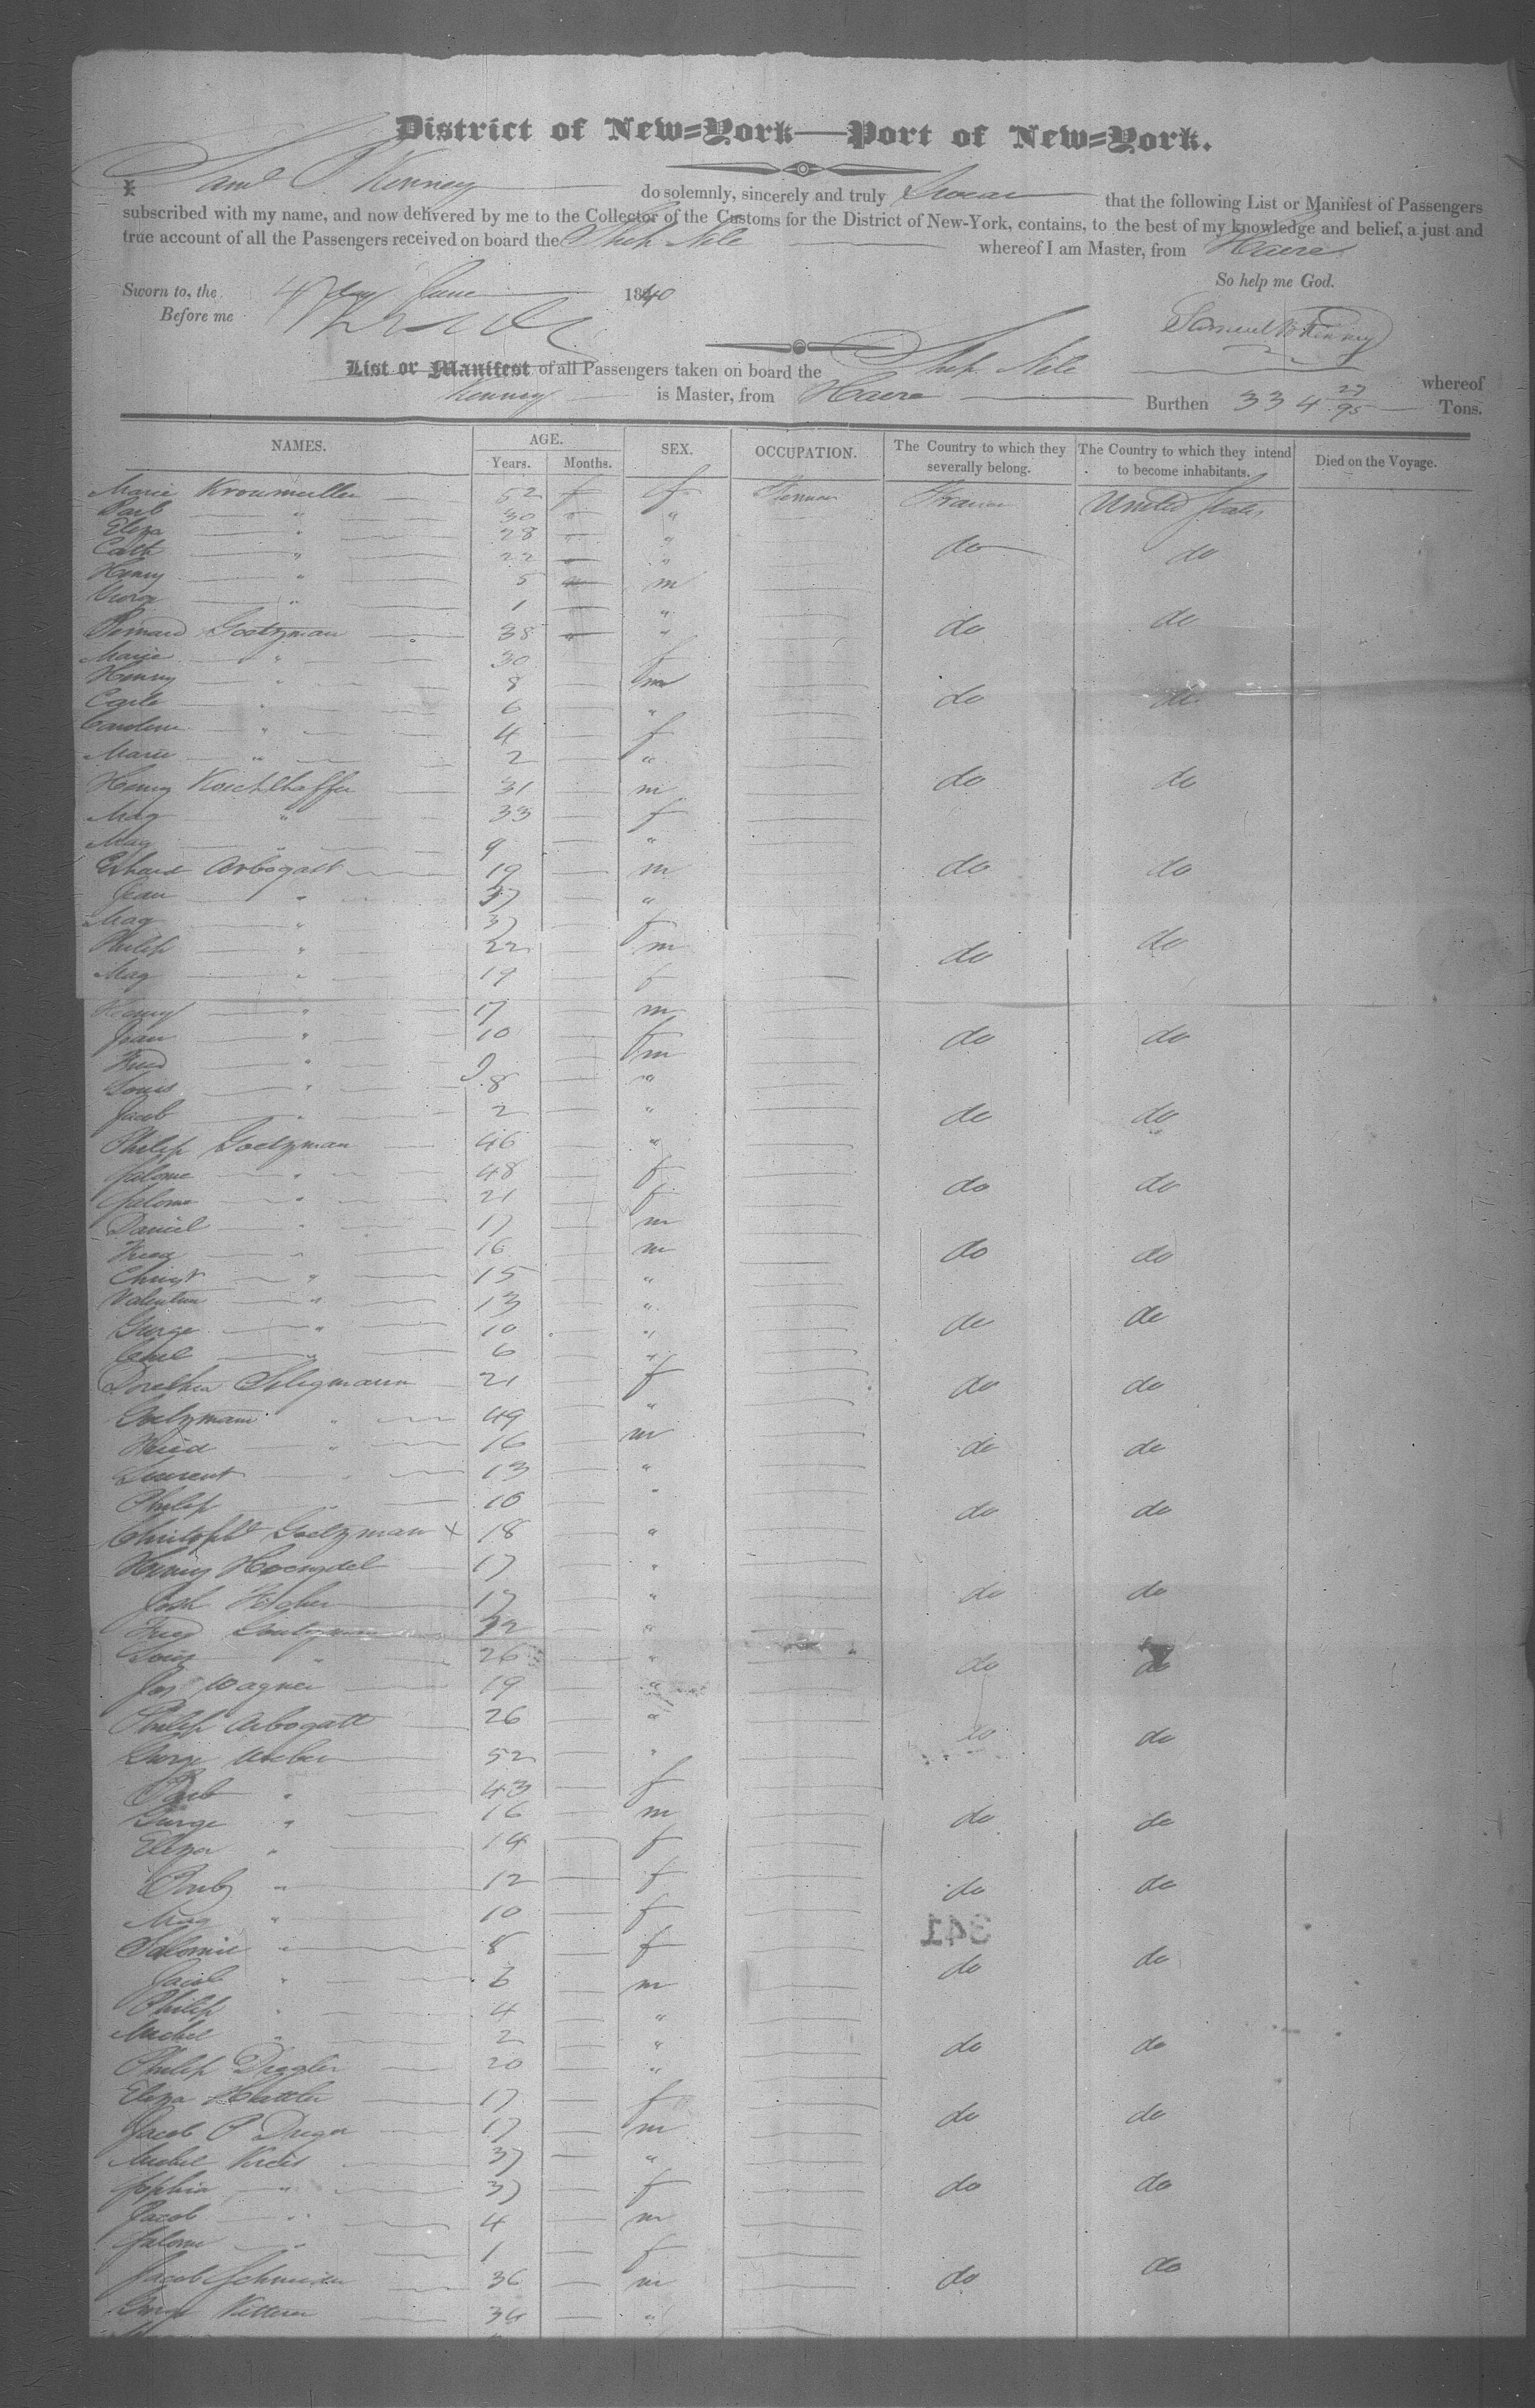 District of New=York—Port of New=York.
I, Saml P. Kenney do solemnly, sincerely and truly Swear that the following List or Manifest of Passengers
subscribed with my name, and now delivered by me to the Collector of the Customs for the District of New-York, contains, to the best of my knowledge and belief, a just and
true account of all the Passengers received on board the Ship Nile whereof I am Master, from Havre
So help me God.
Sworn to, the 4 day June 1840
Before me
Samuel Kenney
List or Manifest of all Passengers taken on board the Ship Nile whereof
Kenney is Master, from Havre Burthen 334 27/95 Tons.
NAMES. AGE. SEX. OCCUPATION. The Country to which they severally belong. The Country to which they intend to become inhabitants. Died on the Voyage.
Years. Months.
Marie Kronmuller 52 f France United States
Barb " 30 "
Eliza " 28 " do do
Cath " 22 "
Henry " 5 m
" 1 "
Bernard Goetzman 38 " do do
Marie " 30 f
Henry " 8 m
" 6 " do do
Caroline " 4 f
Marie " 2 "
Henry Koechlhoffer 31 m do do
Mag " 33 f
Mag " 9 "
Erhard Arbogast 19 m do do
Jean " 37 "
Mag " 37 f
Philip " 22 m do do
Mag " 19 f
Henry " 17 m
Jean " 10 do do
Fred " 9 m
Louis " 8 "
Jacob " 2 " do do
Philip Goetzman 46 "
Salome " 48 f
Salome " 21 f do do
Daniel " 17 m
Fred " 16 m do do
Christ " 15 "
Valentin " 13 "
George " 10 " do do
" 6 "
Dorothea Seligmann 21 f do do
Goetzmann " 49 "
Fried " 16 m do do
Laurent " 13 "
Philip " 10 " do do
Christoph Goetzman x 18 "
Henry 17 "
Jos Fischer 17 " do do
Fred Goetzman 32 "
Louis " 26 " do do
Jos Wagner 19 "
Philip Arbogatt 26 " do do
George Weber 52 "
Barb " 43 f
George " 16 m do do
Eliza " 14 f
Barb " 12 f do do
Mag " 10 f
341
Salomie " 8 f do do
Jacob " 6 m
Philip " 4 "
Michel " 2 " do do
Philip Diggler 20 "
Eliza Hattler 17 f do do
Jacob P 17 m
Michel 37 "
Sophia " 37 f do do
Jacob " 4 m
Salome " 1 f
Jacob Schneider 36 m do do
George 36 "